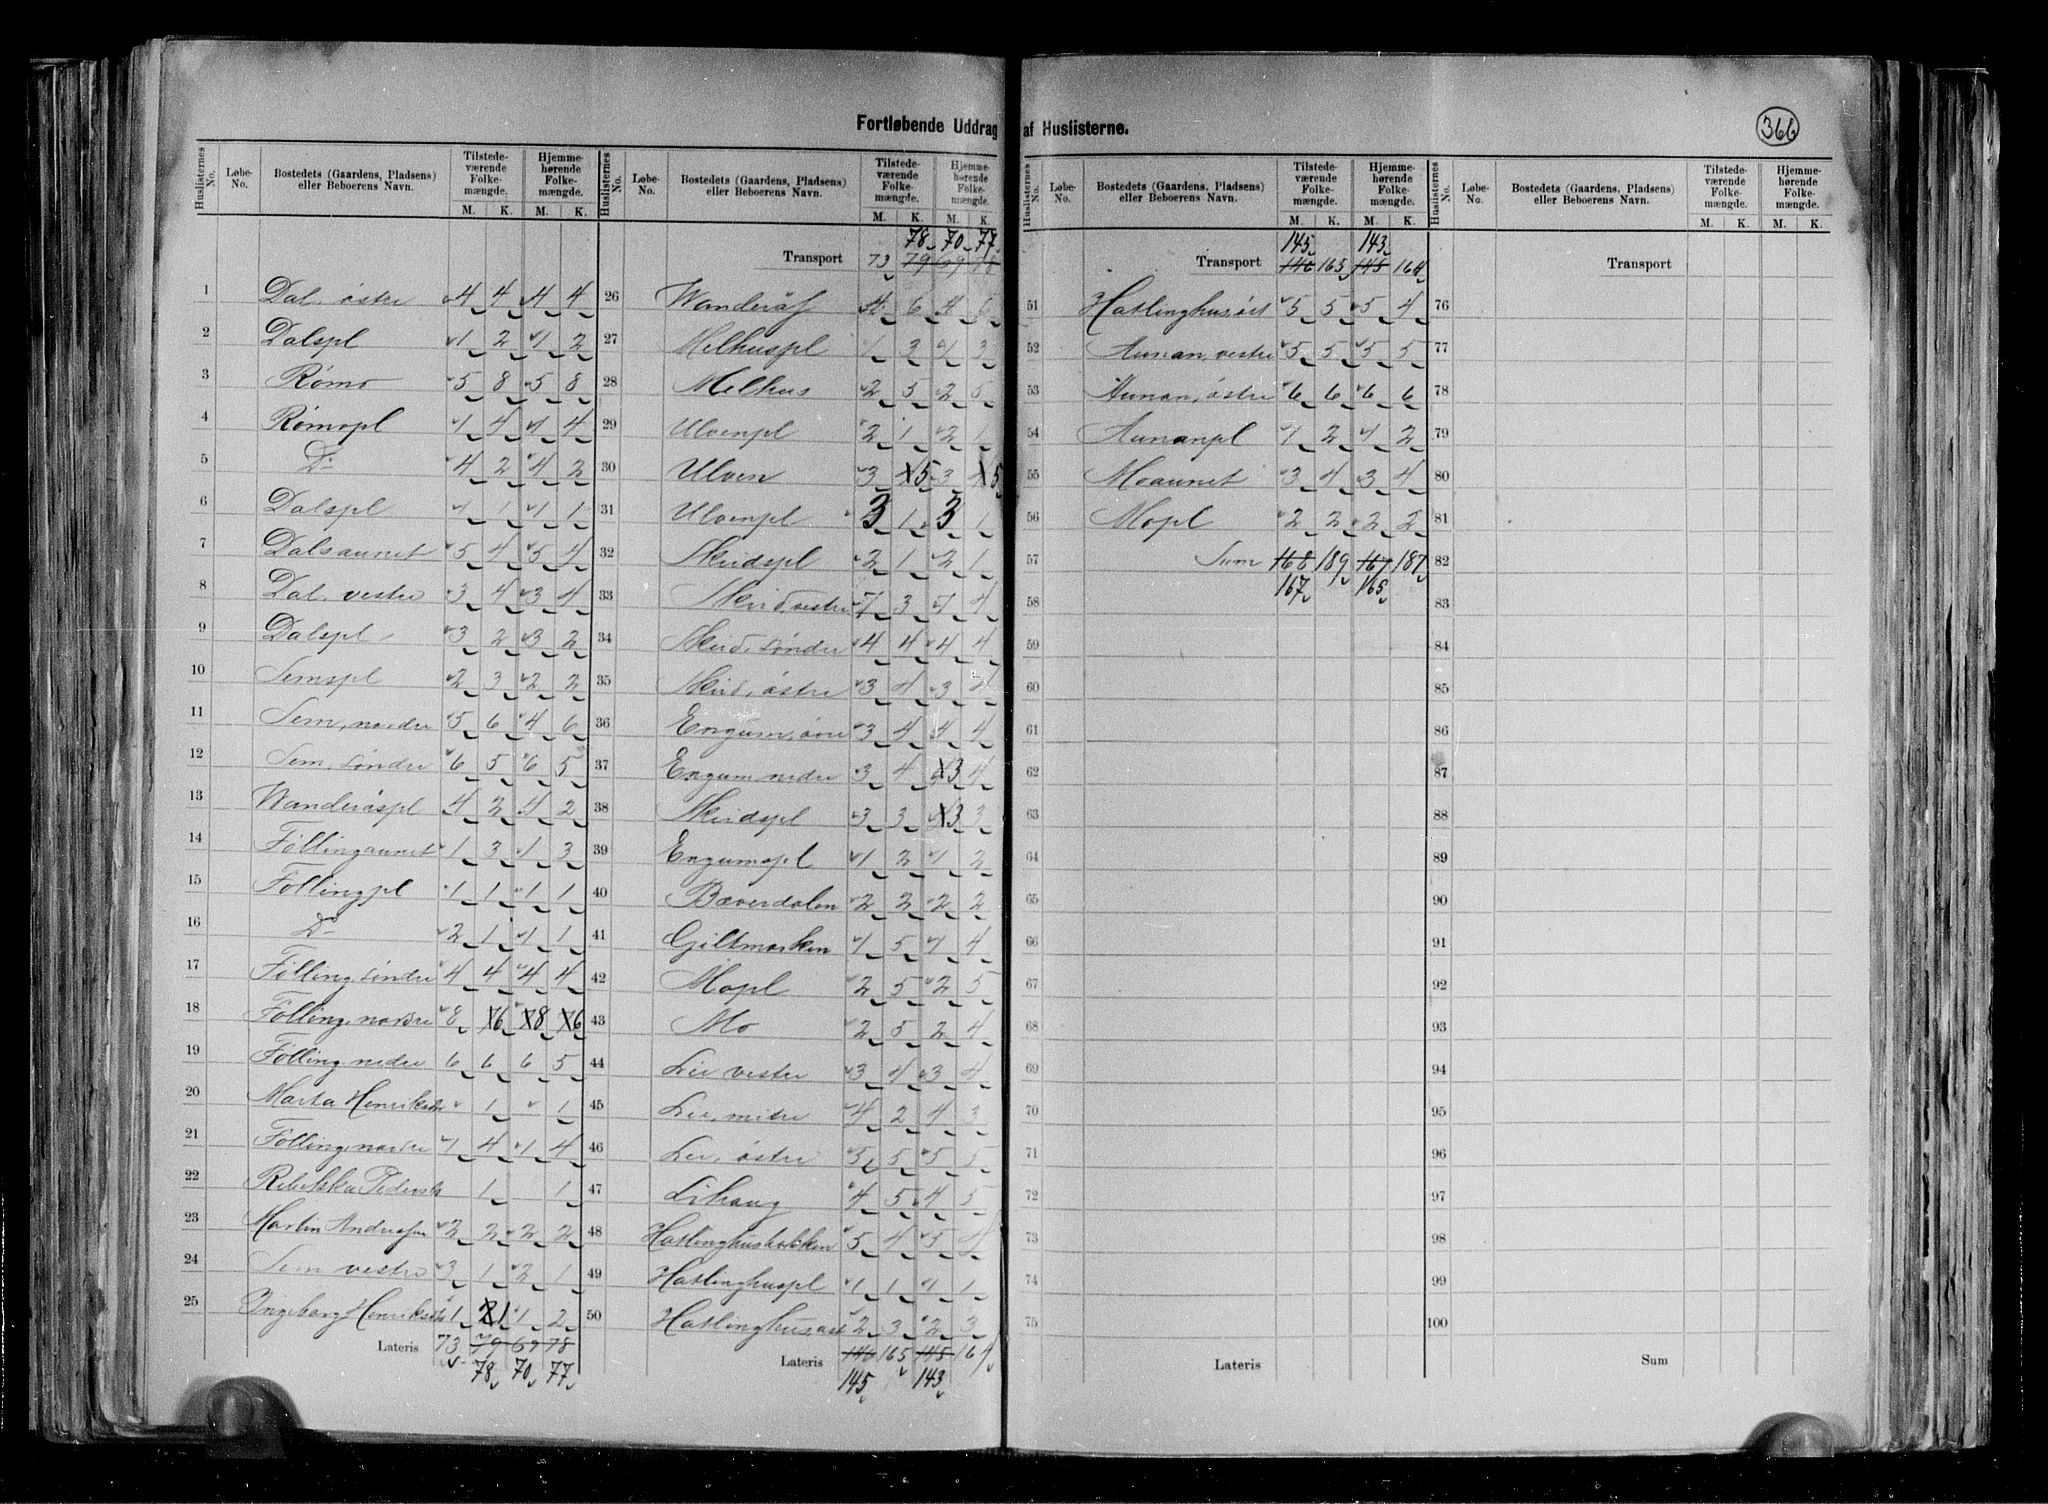 Fortløbende Uddrag af Huslisterne.
366
Huslisternes No. Løbe-No. Bostedets (Gaardens, Pladsens) eller Beboerens Navn. Tilstedeværende Folkemængde. M. K. Hjemmehørende Folkemængde. M. K.
1 Dal østre 4 4 4 4
2 Dalspl 1 2 1 2
3 Rømo 5 8 5 8
4 Rømopl 1 4 1 4
5 D- 4 2 4 2
6 Dalspl 1 1 1 1
7 Dalsaunet 5 4 5 4
8 Dal, vestre 3 4 3 4
9 Dalspl 3 2 3 2
10 Semspl 2 3 2 2
11 Sem, nordre 5 6 4 6
12 Sem, søndre 6 5 6 5
13 Wanderåspl 4 2 4 2
14 Føllingaunet 1 3 1 3
15 Føllingpl 1 1 1 1
16 D- 2 1 1 1
17 Følling, søndre 4 4 4 4
18 Følling, nordre 8 6 8 6
19 Følling nedre 6 6 6 5
20 Marta Henriksd 1 1
21 Følling, nordre 1 4 1 4
22 Rebekka Pedersd 1 1
23 Martin Andreasen 2 2 2 2
24 Sem vestre 3 1 2 1
25 Ingeborg Henriksd 1 21 1 2
Lateris 73 79 69 78
78 70 77
Huslisternes No. Løbe-No. Bostedets (Gaardens, Pladsens) eller Beboerens Navn. Tilstedeværende Folkemængde. M. K. Hjemmehørende Folkemængde. M. K.
78 70 77
Transport 73 79 69 78
26 Wanderås 4 6 4 6
27 Melhuspl 1 3 1 3
28 Melhus 2 5 2 5
29 Ulvenpl 2 1 2 1
30 Ulven 3 5 3 5
31 Ulvenpl 3 1 3 1
32 Skridspl 2 1 2 1
33 Skrid, vestre 7 3 7 4
34 Skrid, søndre 4 4 4 4
35 Skrid, østre 3 4 3 4
36 Engum, øvre 3 4 4 4
37 Engum nedre 3 4 3 4
38 Skridspl 3 3 3 3
39 Engumspl 1 2 1 2
40 Bæverdalen 2 2 2 2
41 Giltmarken 1 5 1 4
42 Mopl 2 5 2 5
43 Mo 2 5 2 4
44 Lir vestre 3 4 3 4
45 Lir, midtre 4 2 4 3
46 Lir, østre 5 5 5 5
47 Lihaug 4 5 4 5
48 Hatlinghusbakken 5 4 5 4
49 Hatlinghuspl 1 1 1 1
50 Hatlinghus 2 3 2 3
Lateris 146 165 145 164
145 143
Huslisternes No. Løbe-No. Bostedets (Gaardens, Pladsens) eller Beboerens Navn. Tilstedeværende Folkemængde. M. K. Hjemmehørende Folkemængde. M. K.
145 143
Transport 146 165 145 164
51 Hatlinghus 5 5 5 4
52 Aunan, vestre 5 5 5 5
53 Aunan, østre 6 6 6 6
54 Aunanpl 1 2 1 2
55 Moaunet 3 4 3 4
56 Mopl 2 2 2 2
57 Sum 168 189 167 187
58 167 165
59
60
61
62
63
64
65
66
67
68
69
70
71
72
73
74
75
Lateris
Huslisternes No. Løbe-No. Bostedets (Gaardens, Pladsens) eller Beboerens Navn. Tilstedeværende Folkemængde. M. K. Hjemmehørende Folkemængde. M. K.
Transport
76
77
78
79
80
81
82
83
84
85
86
87
88
89
90
91
92
93
94
95
96
97
98
99
100
Sum